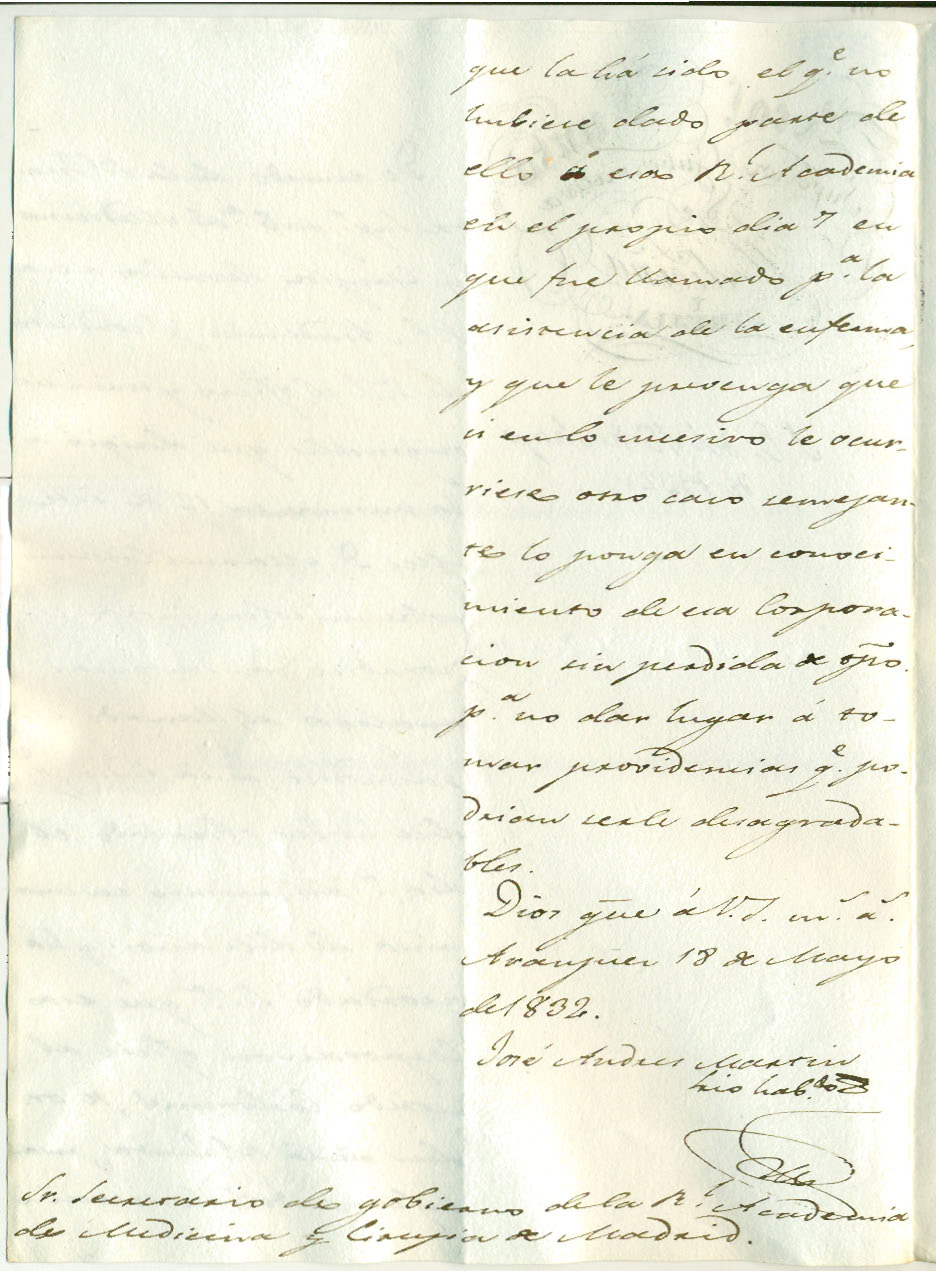 que la há sido el q.e no
hubiese dado parte de
ello á esa R.l Academia
en el propio dia 7 en
que fue llamado p.a la
asistencia de la enferma,
y que le prevenga que
si en lo sucesivo le ocur-
riese otro caso semejan-
te lo ponga en conoci-
miento de esa Corpora-
cion sin perdida de tpo.
p.a no dar lugar á to-
mar providencias q.e po-
drian serle desagrada-
bles.
Dios gue á V.S. m.s a.s
Aranjuez 18 de Mayo
de 1832.
José Andres Martin
srio hab.do
Sr. Secretario de gobierno de la R.l Academia
de Medicina y Cirugia de Madrid.